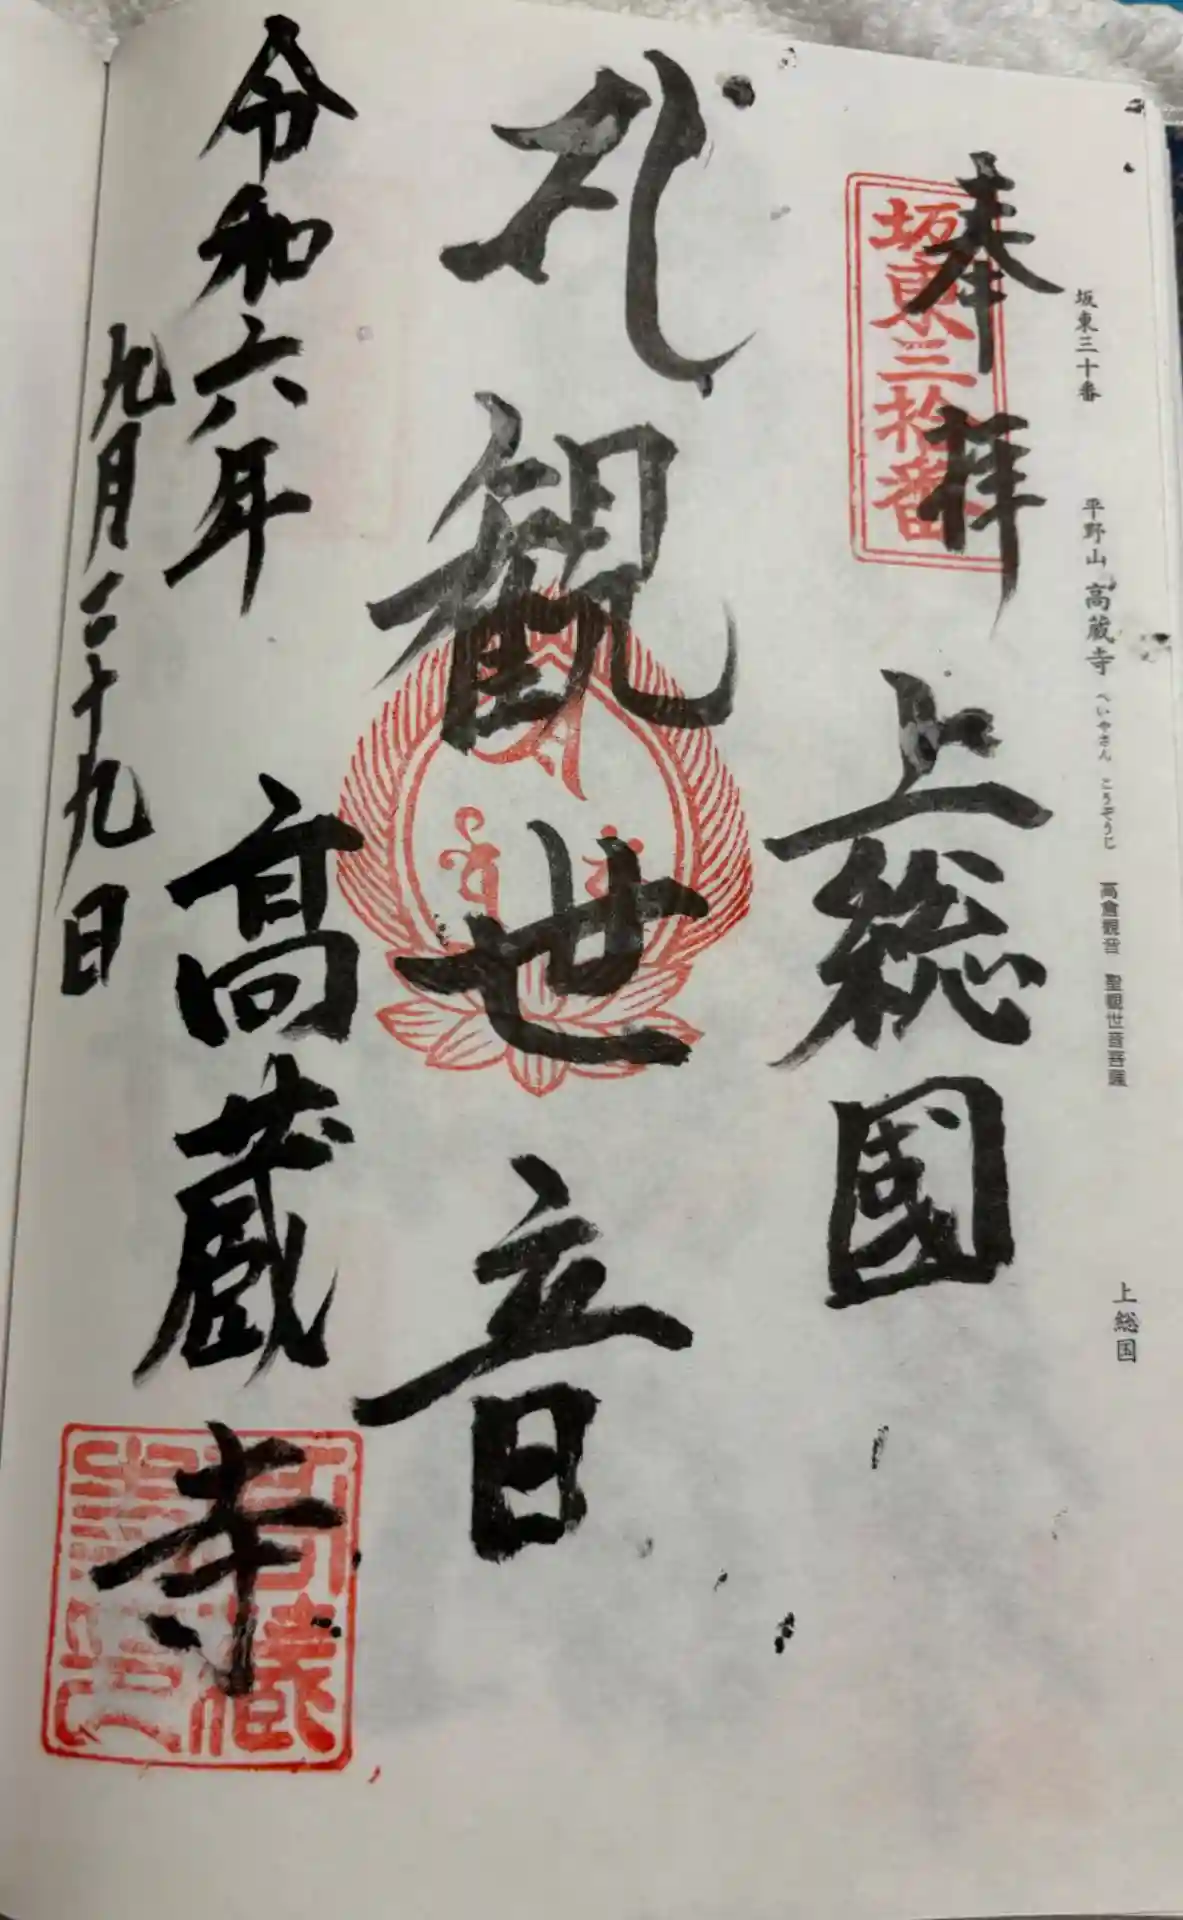 坂東三十番 平野山 高蔵寺 へいやさん こうぞうじ 高倉観音 聖観世音菩薩 上総国
奉拝 上総國
坂東三拾番
観世音
令和六年 高蔵寺
九月二十九日